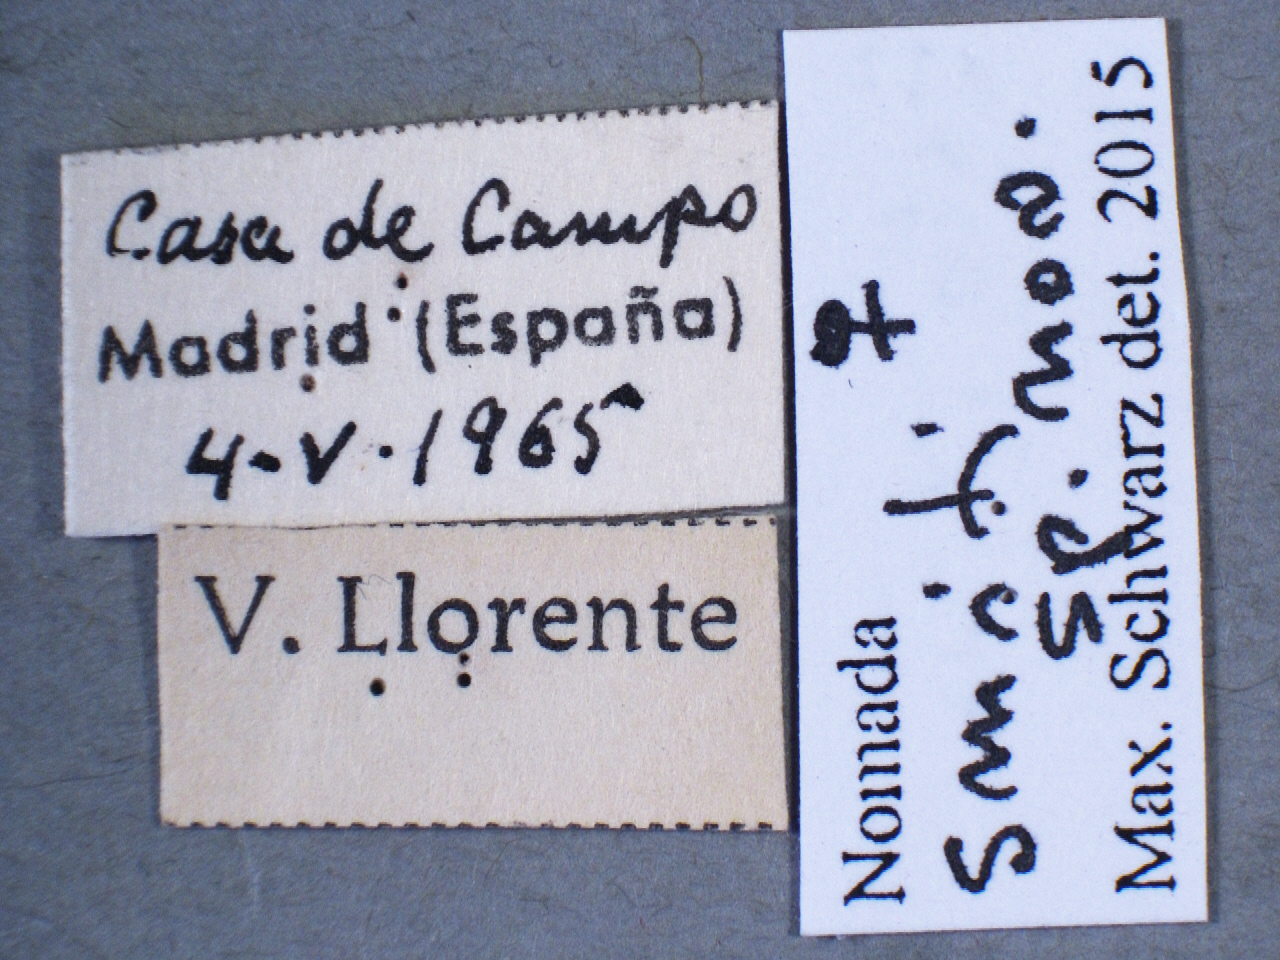 Casa de Campo
Madrid (España)
4-V-1965
V. Llorente
Nomada ♀
sp. nov.
Max. Schwarz det. 2015